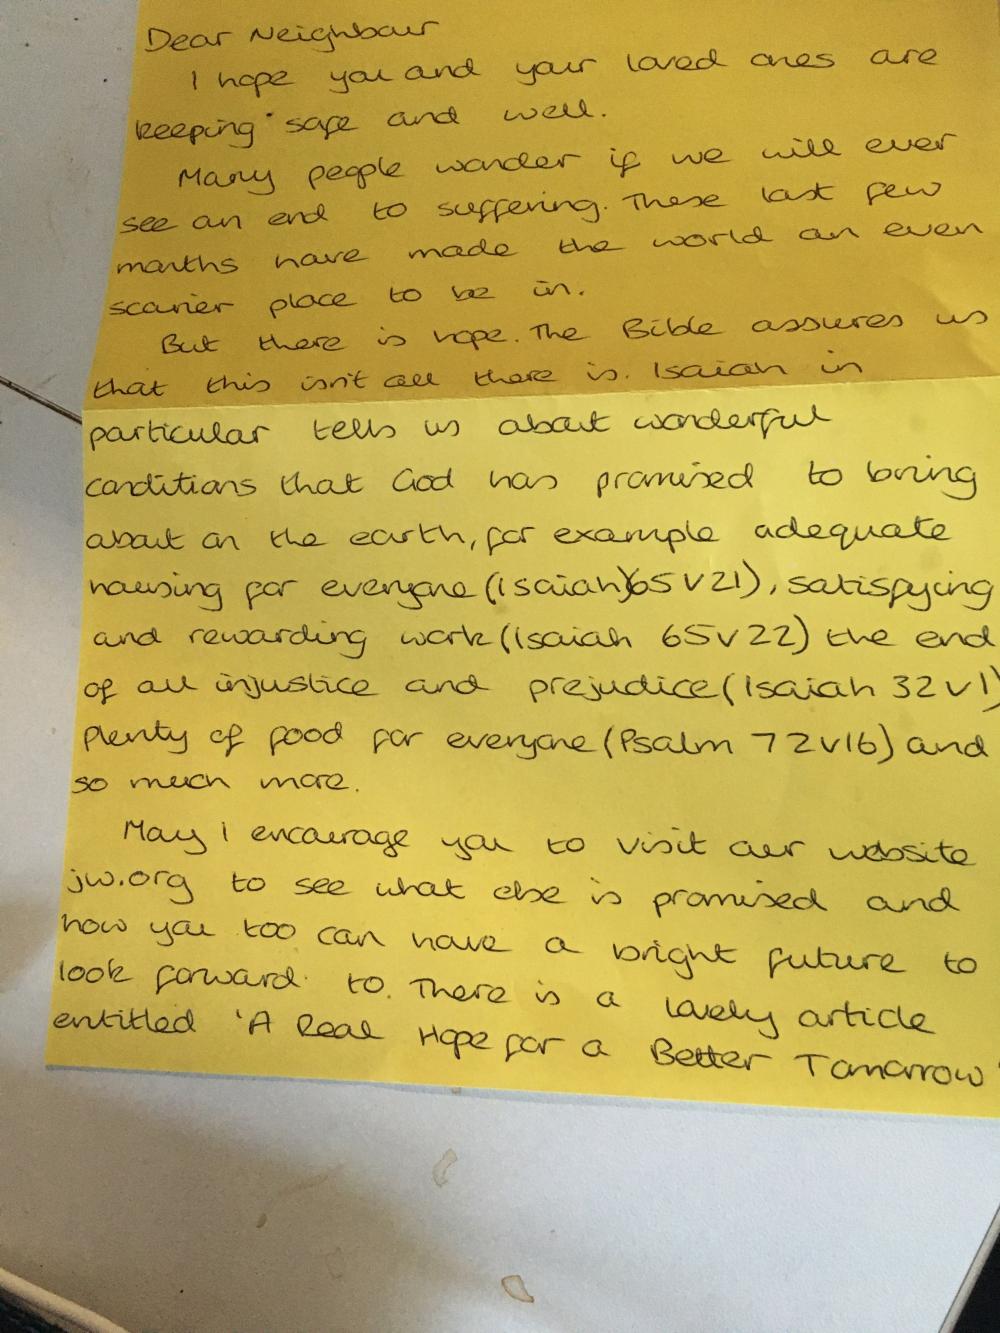 Dear Neighbour
I hope you and your loved ones are
keeping safe and well.
Many people wonder if we will ever
see an end to suffering. These last few
months have made the world an even
scarier place to be in.
But there is hope. The Bible assures us
that this isn't all there is. Isaiah in
particular tells us about wonderful
conditions that God has promised to bring
about on the earth, for example adequate
housing for everyone (Isaiah)65 v 21), satisfying
and rewarding work (Isaiah 65 v 22) the end
of all injustice and prejudice (Isaiah 32 v 1)
plenty of food for everyone (Psalm 72 v 16) and
so much more.
May I encourage you to visit our website
jw.org to see what else is promised and
how you too can have a bright future to
look forward to. There is a lovely article
entitled 'A Real Hope for a Better Tomorrow'